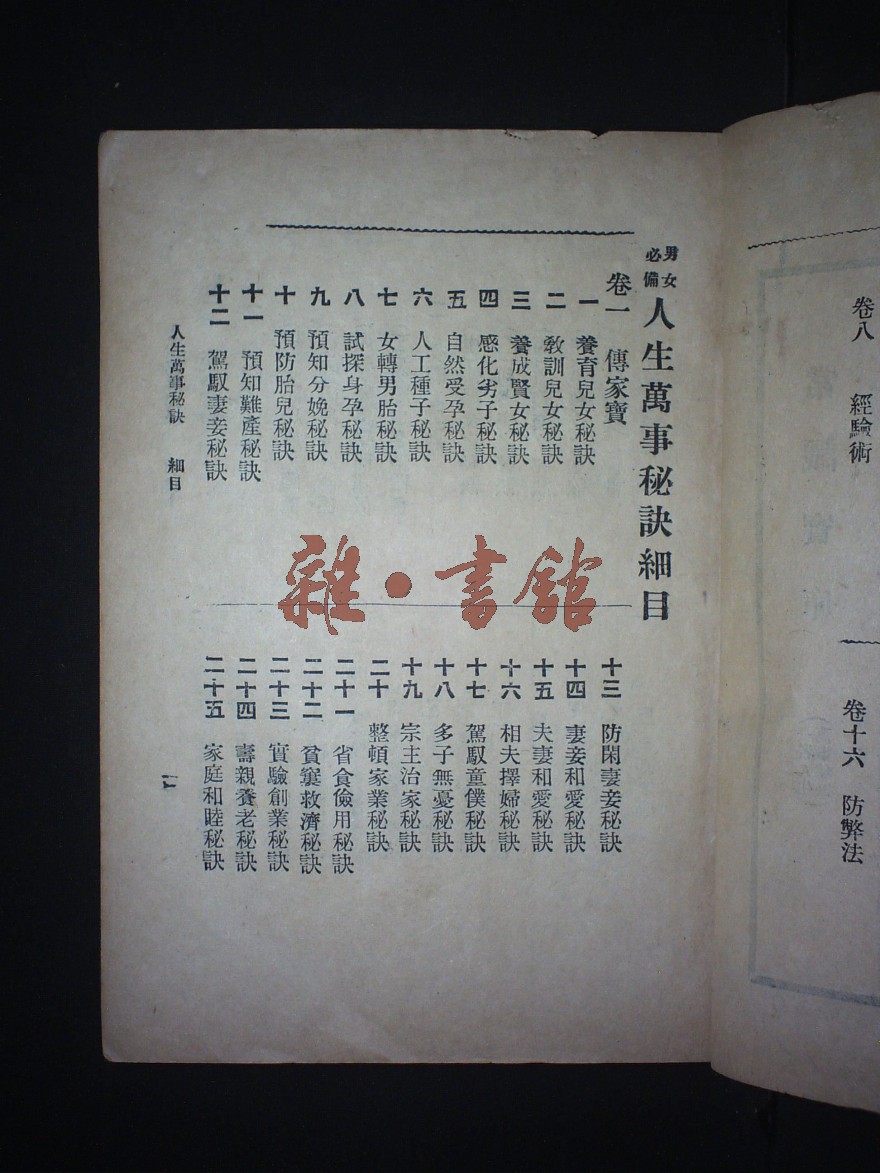 卷八　經驗術
卷十六　防弊法
男女必備
人生萬事秘訣細目
卷一　傳家寶
一　養育兒女秘訣
二　教訓兒女秘訣
三　養成賢女秘訣
四　感化劣子秘訣
五　自然受孕秘訣
六　人工種子秘訣
七　女轉男胎秘訣
八　試探身孕秘訣
九　預知分娩秘訣
十　預防胎兒秘訣
十一　預知難產秘訣
十二　駕馭妻妾秘訣
十三　防閑妻妾秘訣
十四　妻妾和愛秘訣
十五　夫妻和愛秘訣
十六　相夫擇婦秘訣
十七　駕馭童僕秘訣
十八　多子無憂秘訣
十九　宗主治家秘訣
二十　整頓家業秘訣
二十一　省食儉用秘訣
二十二　貧窶救濟秘訣
二十三　實驗創業秘訣
二十四　壽親養老秘訣
二十五　家庭和睦秘訣
人生萬事秘訣　細目
一
雜·書館